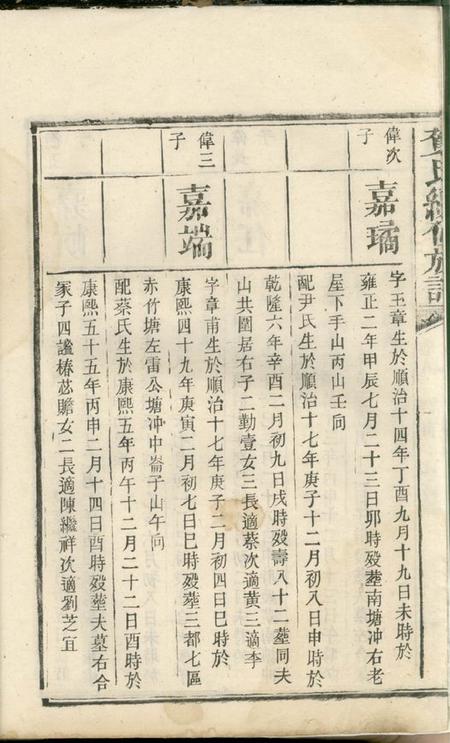 氏續修族譜
偉次子
嘉璚
字玉章生於順治十四年丁酉九月十九日未時於
雍正二年甲辰七月二十三日卯時歿塟南塘冲右老
屋下手山丙山壬向
配尹氏生於順治十七年庚子十二月初八日申時於
乾隆六年辛酉二月初九日戌時歿壽八十二塟同夫
山共圍居右子二勤壹女三長適蔡次適黄三適李
偉三子
嘉端
字章甫生於順治十七年庚子二月初四日巳時於
康熙四十九年庚寅二月初七日巳時歿塟三都七區
赤竹塘左雷公塘冲中崙子山午向
配蔡氏生於康熙五年丙午十二月二十二日酉時於
康熙五十五年丙申二月十四日酉時歿塟夫墓右合
冢子四謐椿苾贍女二長適陳繼祥次適劉芝宜